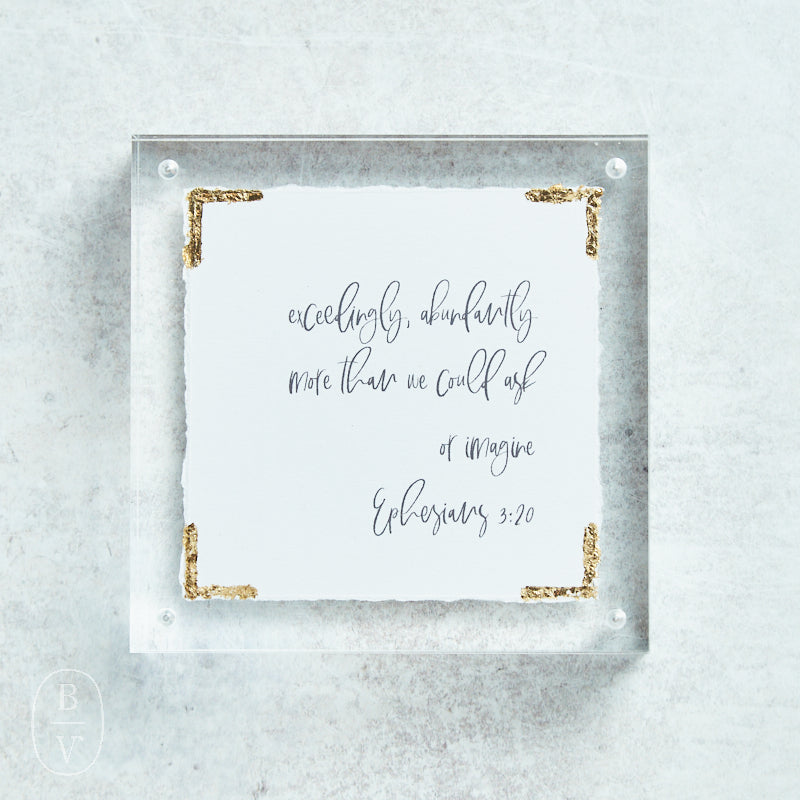 exceedingly, abundantly
more than we could ask
or imagine
Ephesians 3:20
B
V